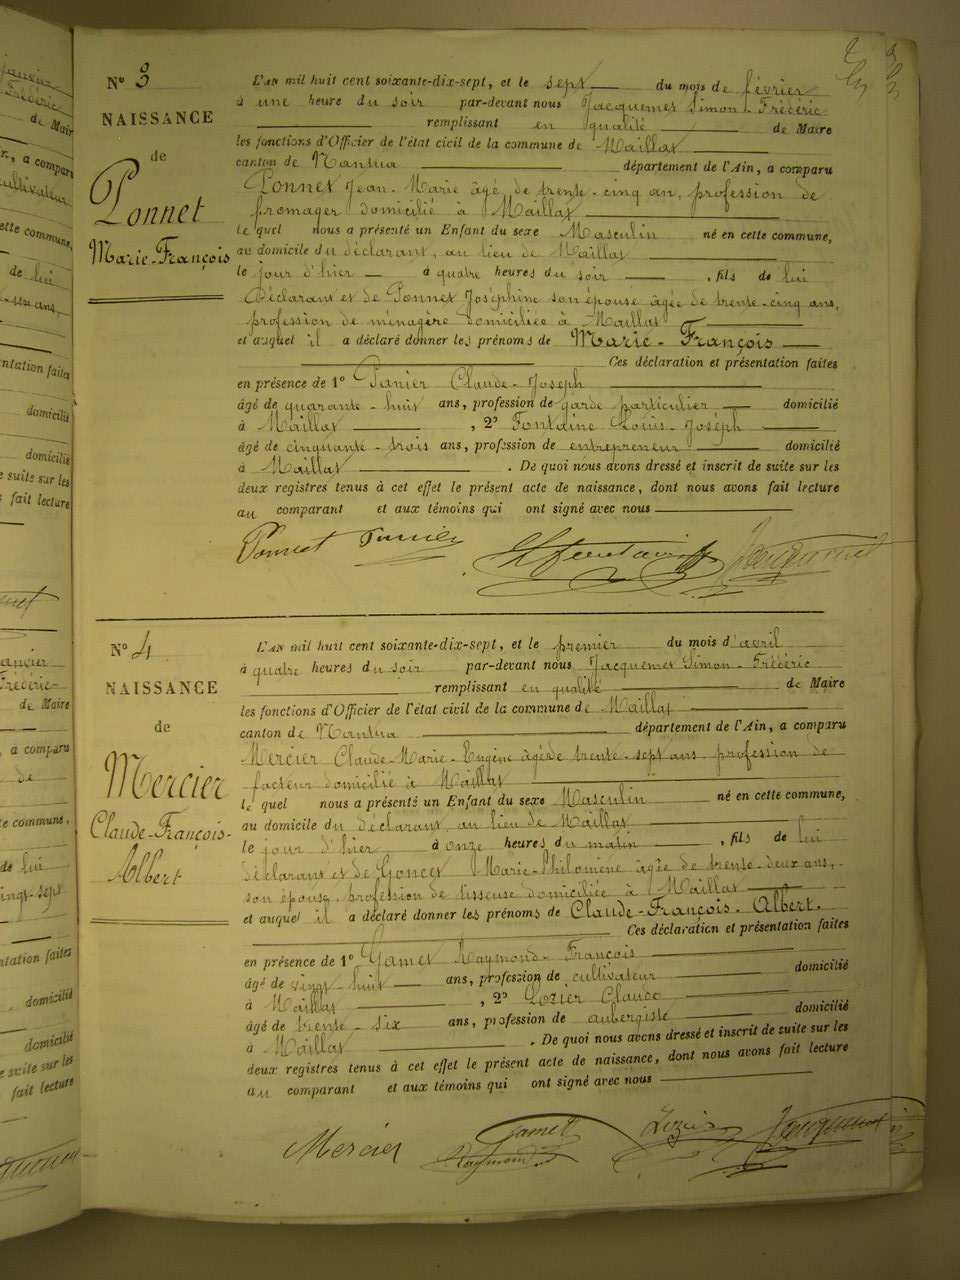 N° 3
NAISSANCE
de
Ponnet
Marie-François
L'AN mil huit cent soixante-dix-sept, et le sept du mois de février
à une heure du soir par-devant nous Jacquemet Simon-Frédéric
remplissant en qualité de Maire
les fonctions d'Officier de l'état civil de la commune de Maillat
canton de Nantua département de l'Ain, a comparu
Ponnet Jean-Marie âgé de trente-cinq an, profession de
fromager domicilié à Maillat
le quel nous a présenté un Enfant du sexe Masculin né en cette commune,
au domicile du déclarant, au lieu de Maillat
le jour d'hier à quatre heures du soir , fils de lui
déclarant et de Ponnet Joséphine son épouse âgée de trente-cinq ans,
profession de ménagère domiciliée à Maillat
et auquel il a déclaré donner les prénoms de Marie-François
Ces déclaration et présentation faites
en présence de 1° Panier Claude-Joseph
âgé de quarante-huit ans, profession de garde particulier domicilié
à Maillat , 2° Fontaine Louis-Joseph
âgé de cinquante-trois ans, profession de entrepreneur domicilié
à Maillat . De quoi nous avons dressé et inscrit de suite sur les
deux registres tenus à cet effet le présent acte de naissance, dont nous avons fait lecture
au comparant et aux témoins qui ont signé avec nous
Ponnet
N° 4
NAISSANCE
de
Mercier
Claude-François-
Albert
L'AN mil huit cent soixante-dix-sept, et le premier du mois d'avril
à quatre heures du soir par-devant nous Jacquemet Simon-Frédéric
remplissant en qualité de Maire
les fonctions d'Officier de l'état civil de la commune de Maillat
canton de Nantua département de l'Ain, a comparu
Mercier Claude-Marie-Eugène âgé de trente-sept ans profession de
facteur domicilié à Maillat
le quel nous a présenté un Enfant du sexe Masculin né en cette commune,
au domicile du déclarant, au lieu de Maillat
le jour d'hier à onze heures du matin , fils de lui
déclarant et de Goncet Marie-Philomène âgée de trente-deux ans,
son épouse, profession de tisseuse domiciliée à Maillat
et auquel il a déclaré donner les prénoms de Claude-François-Albert.
Ces déclaration et présentation faites
en présence de 1° Gamet Raymond-François
âgé de vingt-huit ans, profession de cultivateur domicilié
à Maillat , 2° Lozier Claude
âgé de trente-six ans, profession de aubergiste domicilié
à Maillat . De quoi nous avons dressé et inscrit de suite sur les
deux registres tenus à cet effet le présent acte de naissance, dont nous avons fait lecture
au comparant et aux témoins qui ont signé avec nous
Mercier Gamet Lozier Jacquemet
Raymond